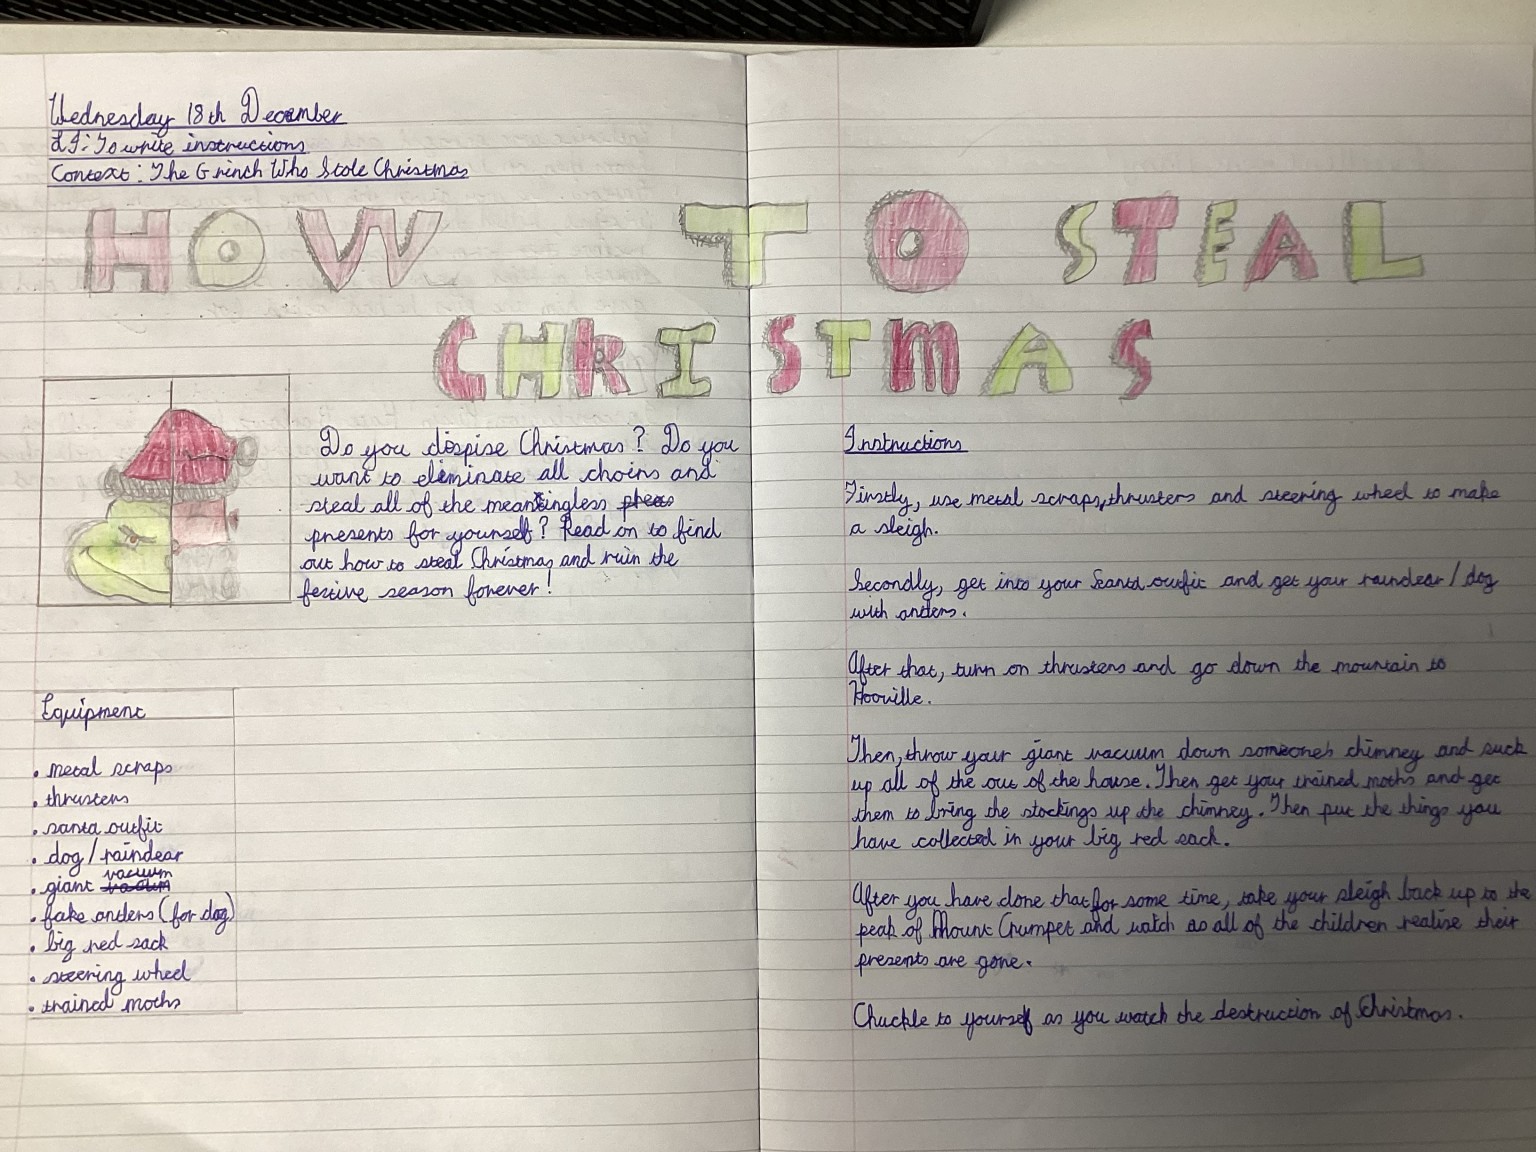 Wednesday 18th December
LI: To write instructions
Context: The Grinch Who Stole Christmas
HOW TO STEAL
CHRISTMAS
Do you despise Christmas? Do you
want to eliminate all choirs and
steal all of the meaningless
presents for yourself? Read on to find
out how to steal Christmas and ruin the
festive season forever!
Equipment
• metal scraps
• thrusters
• santa outfit
• dog/raindear
vacuum
• giant
• fake anters (for dog)
• big red sack
• steering wheel
• trained moths
Instructions
Firstly, use metal scraps, thrusters and steering wheel to make
a sleigh.
Secondly, get into your Santa outfit and get your raindear/dog
with anters.
After that, turn on thrusters and go down the mountain to
Hooville.
Then, throw your giant vacuum down someone's chimney and suck
up all of the out of the house. Then get your trained moths and get
them to bring the stockings up the chimney. Then put the things you
have collected in your big red sack.
After you have done that for some time, take your sleigh back up to the
peak of Mount Crumpet and watch as all of the children realise their
presents are gone.
Chuckle to yourself as you watch the destruction of Christmas.